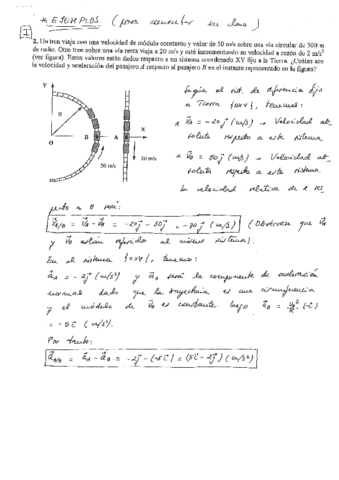 * EJEMPLOS (para comentar en clase)
1
2. Un tren viaja con una velocidad de módulo constante y valor de 50 m/s sobre una vía circular de 500 m
de radio. Otro tren sobre una vía recta viaja a 20 m/s y está incrementando su velocidad a razón de 2 m/s²
(ver figura). Estos valores están dados respecto a un sistema coordenado XY fijo a la Tierra. ¿Cuáles son
la velocidad y aceleración del pasajero A respecto al pasajero B en el instante representado en la figura?
Y
R
O
B
A
X
50 m/s
20 m/s
Según el sist. de referencia fijo
a Tierra {OXY}, tenemos:
* v⃗A = -20 j⃗ (m/s) → Velocidad ab-
soluta respecto a este sistema.
* v⃗B = 50 j⃗ (m/s) → Velocidad ab-
soluta respecto a este sistema
La velocidad relativa de A res-
pecto a B será:
v⃗A/B = v⃗A - v⃗B = -20j⃗ - 50j⃗ = -70j⃗ (m/s) (Obsérvese que v⃗A
y v⃗B están referidos al mismo sistema).
En el sistema {OXY}, tenemos:
a⃗A = -2j⃗ (m/s²) y a⃗B será la componente de aceleración
normal dado que la trayectoria es una circunferencia
y el módulo de v⃗B es constante. Luego a⃗B = vB²/R (-i⃗)
= -5i⃗ (m/s²).
Por tanto:
a⃗A/B = a⃗A - a⃗B = -2j⃗ - (-5i⃗) = (5i⃗ - 2j⃗) (m/s²)